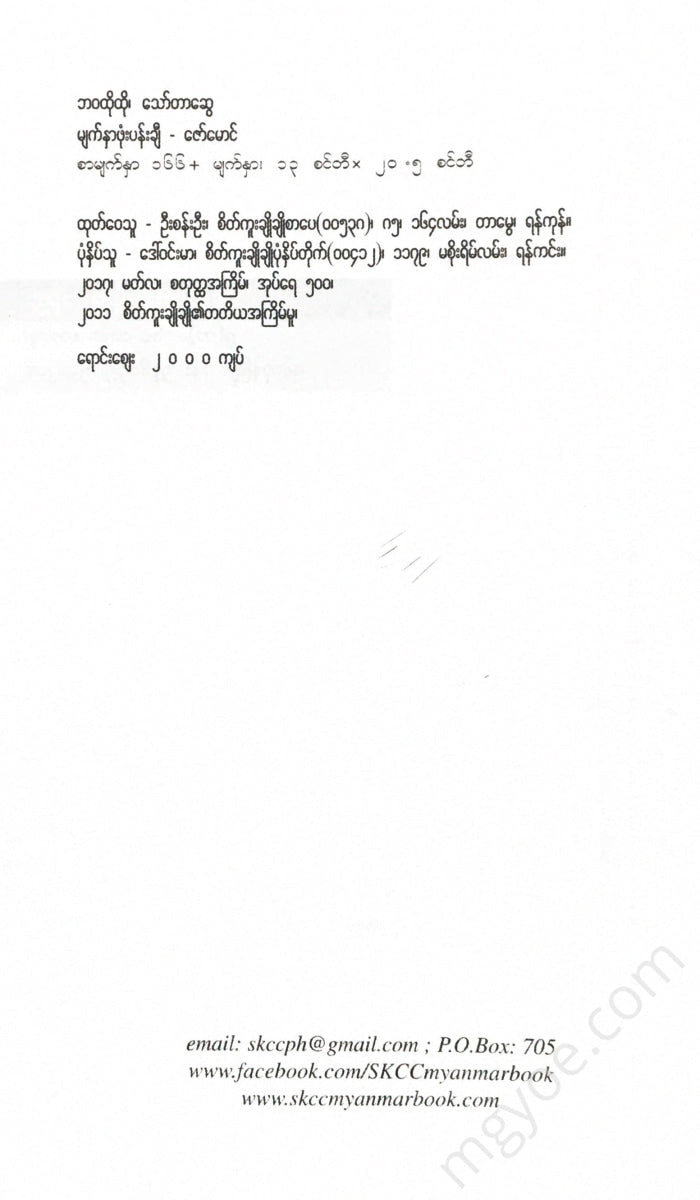 ဘဝထိုထို၊ သော်တာဆွေ
မျက်နှာဖုံးပန်းချီ - ဇော်မောင်
စာမျက်နှာ ၁၆၆+ မျက်နှား ၁၃ စင်တီ× ၂၀.၅ စင်တီ
ထုတ်ဝေသူ - ဦးစန်းဦး၊ စိတ်ကူးချိုချိုစာပေ(၀၀၅၃၈)၊ ၈၅၊ ၁၆၄လမ်း၊ တာမွေ၊ ရန်ကုန်။
ပုံနှိပ်သူ - ဒေါ်ဝင်းမာ၊ စိတ်ကူးချိုချိုပုံနှိပ်တိုက်(၀၀၄၁၂)၊ ၁၁၇၉၊ မစိုးရိမ်လမ်း၊ ရန်ကင်း။
၂၀၁၇၊ မတ်လ၊ စတုတ္ထအကြိမ်၊ အုပ်ရေ ၅၀၀၊
၂၀၁၁ စိတ်ကူးချိုချို၏တတိယအကြိမ်မူ၊
ရောင်းဈေး ၂ ၀ ၀ ၀ ကျပ်
email: skccph@gmail.com ; P.O.Box: 705
www.facebook.com/SKCCmyanmarbook
www.skccmyanmarbook.com
mgyoe.com